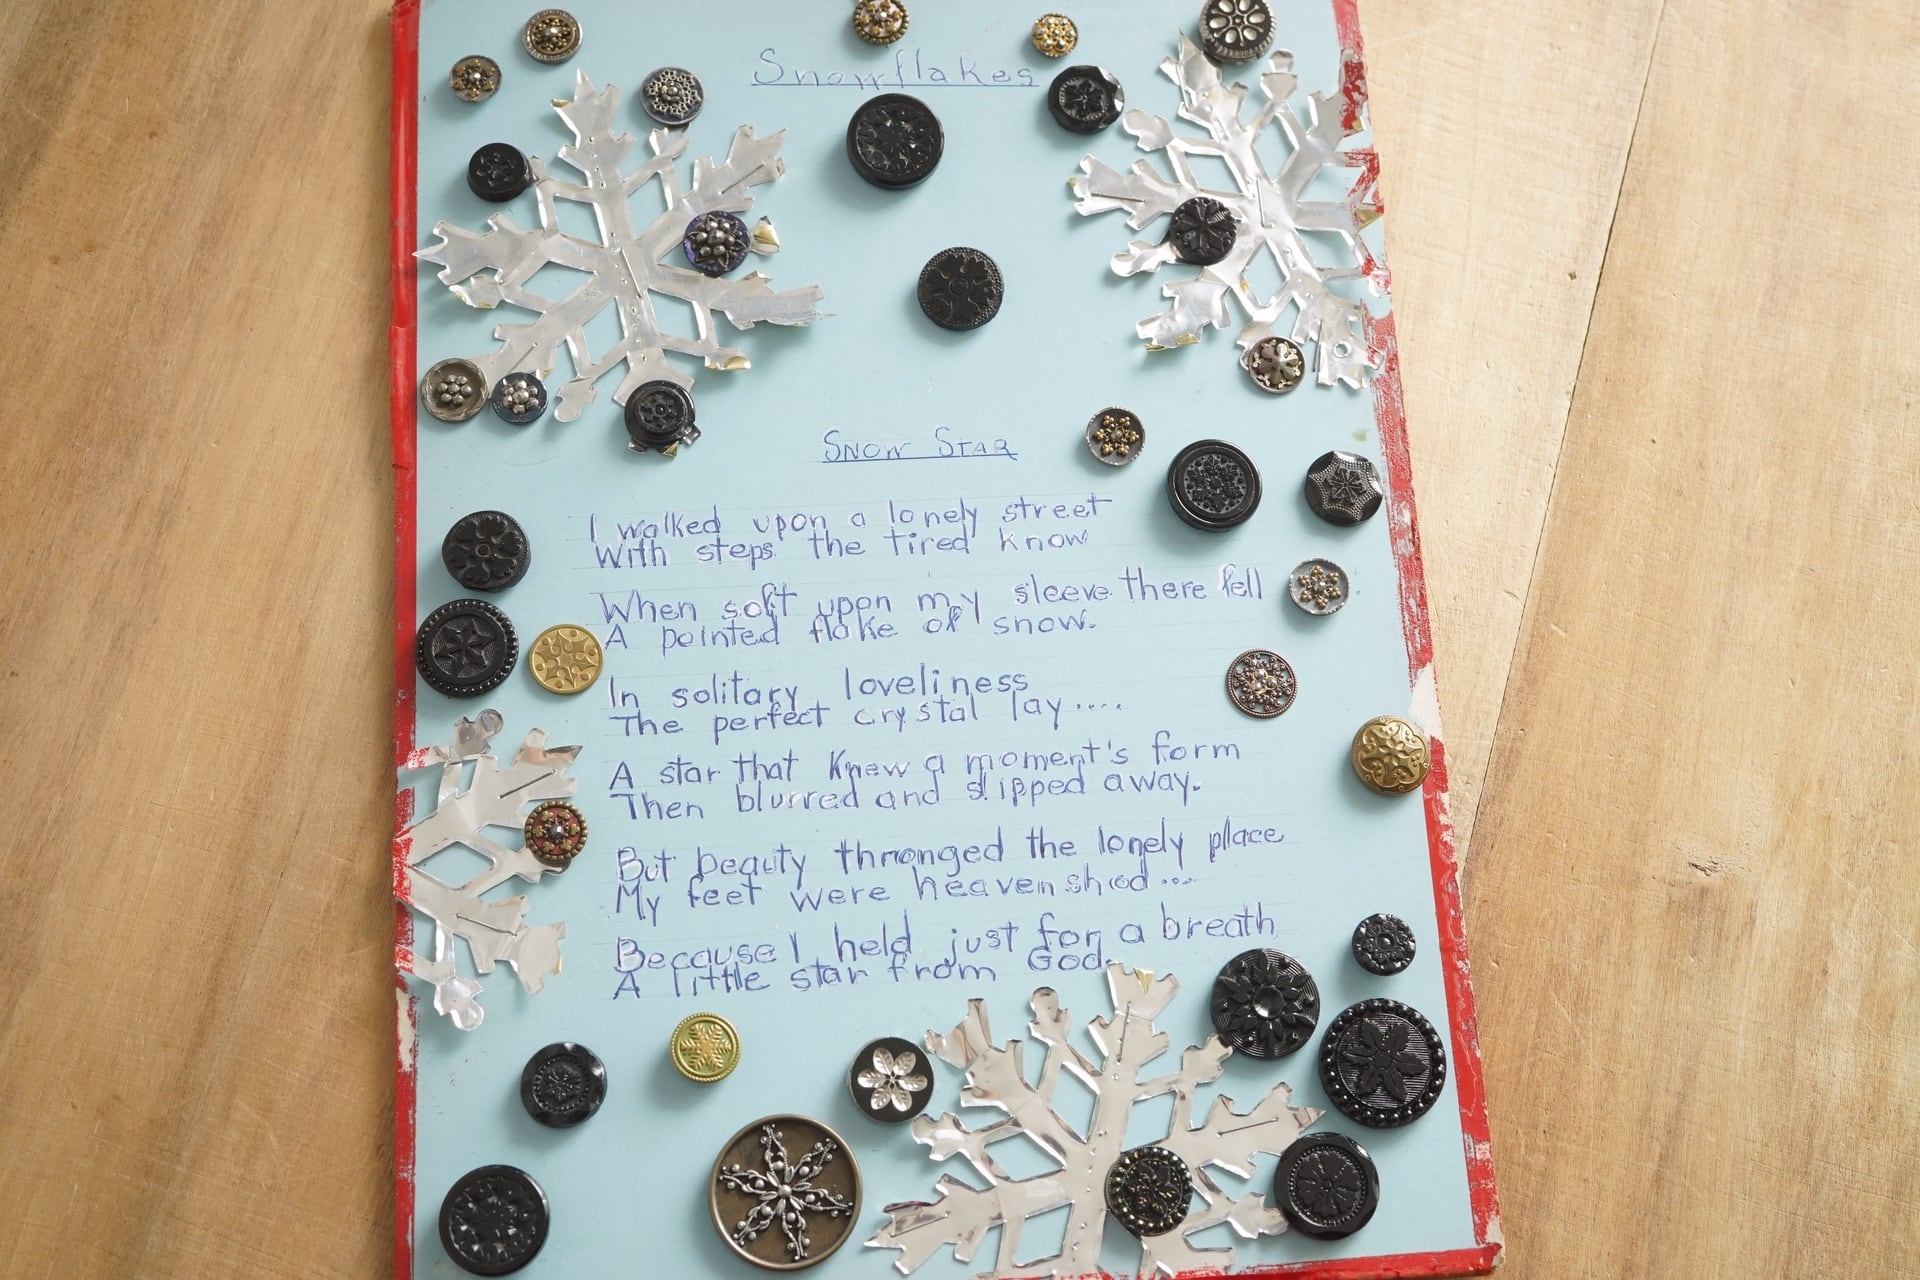 Snowflakes
SNOW STAR
I walked upon a lonely street
With steps the tired know
When soft upon my sleeve there fell
A pointed flake of snow.
In solitary loveliness
The perfect crystal lay....
A star that knew a moment's form
Then blurred and slipped away.
But beauty thronged the lonely place
My feet were heaven shod...
Because I held just for a breath
A little star from God.